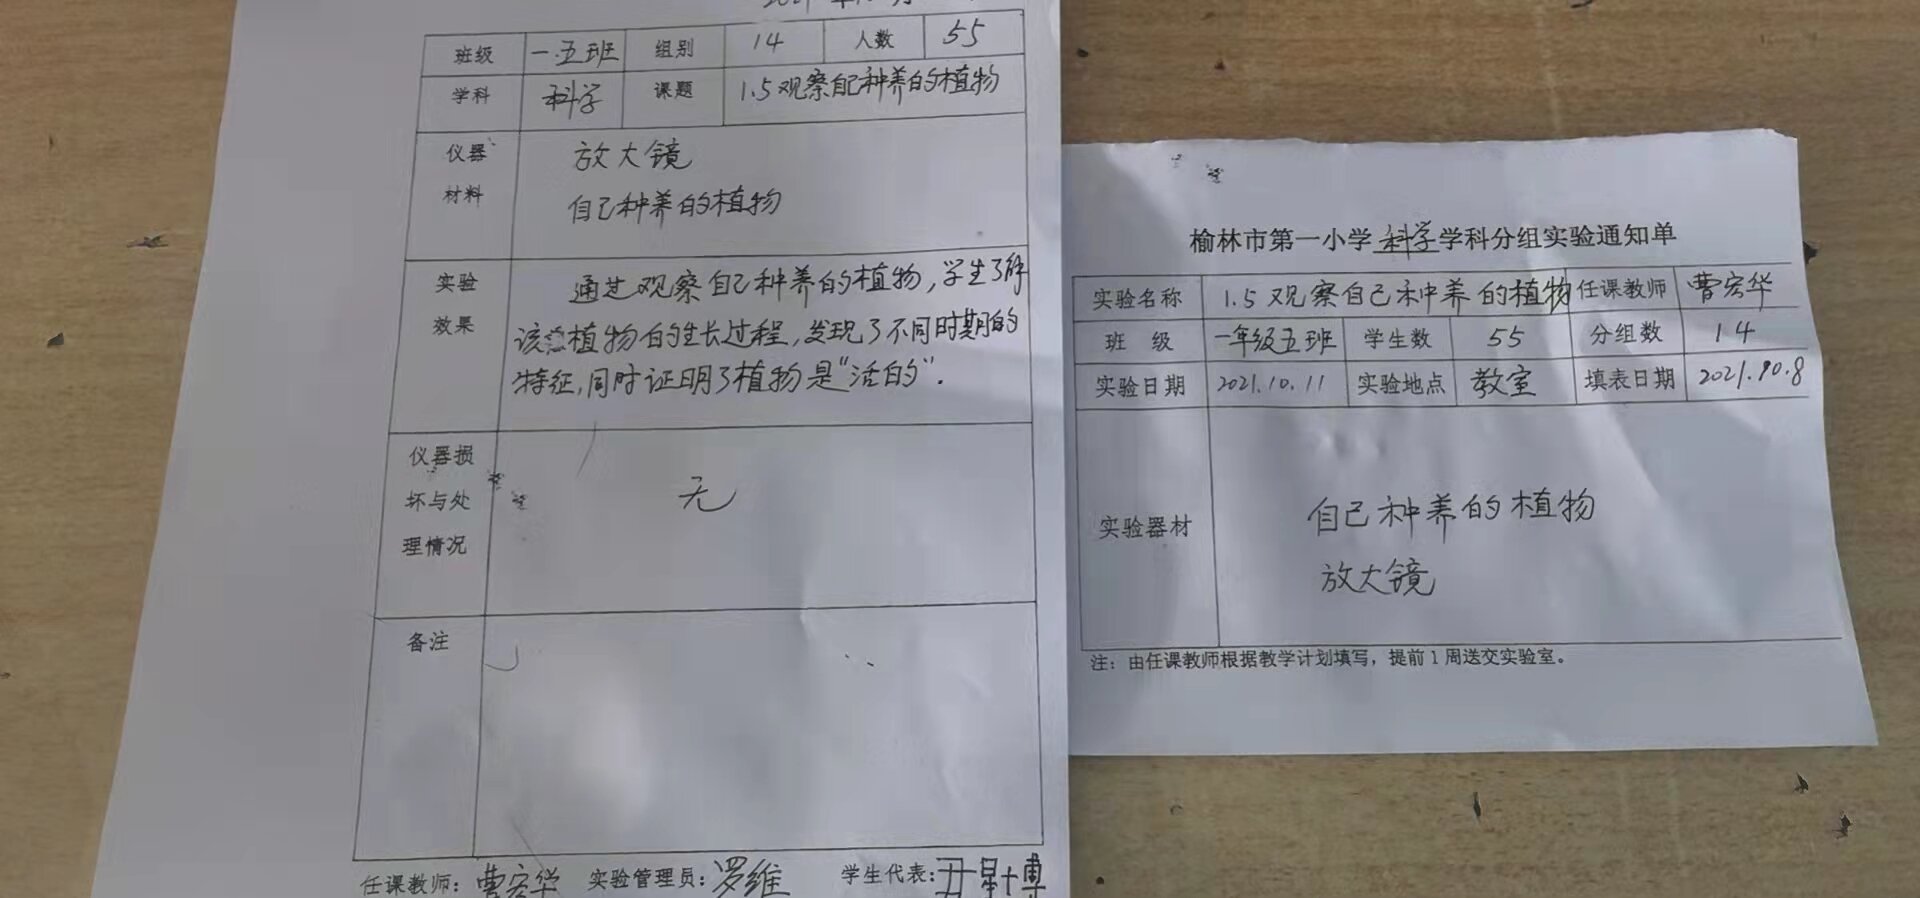 班级 一.五班 组别 14 人数 55
学科 科学 课题 1.5观察自己种养的植物
仪器材料 放大镜
自己种养的植物
实验效果 通过观察自己种养的植物,学生了解
该植物的生长过程,发现了不同时期的
特征,同时证明了植物是“活的”.
仪器损坏与处理情况 无
备注
任课教师:曹宏华 实验管理员:罗维 学生代表:
榆林市第一小学科学学科分组实验通知单
实验名称 1.5 观察自己种养的植物 任课教师 曹宏华
班 级 一年级五班 学生数 55 分组数 14
实验日期 2021.10.11 实验地点 教室 填表日期 2021.10.8
实验器材 自己种养的植物
放大镜
注:由任课教师根据教学计划填写,提前1周送交实验室。